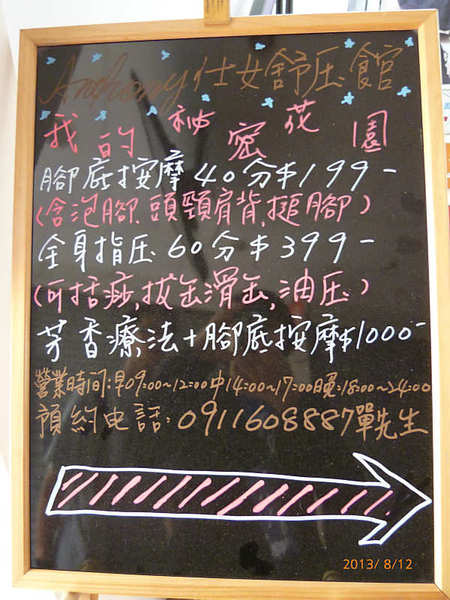 Anthony仕女舒压館
我的祕密花園
腳底按摩40分$199-
(含泡腳、頭頸肩背,搥腳)
全身指压60分$399-
(可括痧,拔缶滑缶,油压)
芳香療法+腳底按摩$1000-
營業時間:早09:00~12:00中14:00~17:00晚:18:00~24:00
預約电話:0911608887單先生
2013/ 8/12